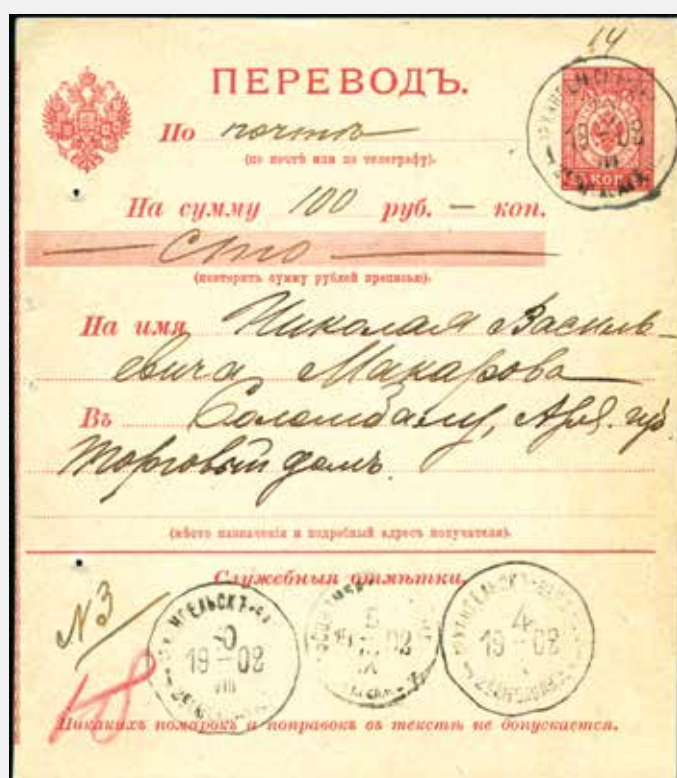 14
ПЕРЕВОДЪ.
По почтѣ
(по почтѣ или по телеграфу).
На сумму 100 руб. — коп.
— Сто —
(повторить сумму рублей прописью).
На имя Николая Василь-
евича Макарова
Въ Соломбалу, Арх. губ.
Торговый домъ.
(мѣсто назначенія и подробный адресъ получателя).
Служебныя отмѣтки.
N 3
19-02
VIII
КОП
19-02
VIII
5
02
IX
4
19-02
Никакихъ помарокъ и поправокъ въ текстѣ не допускается.